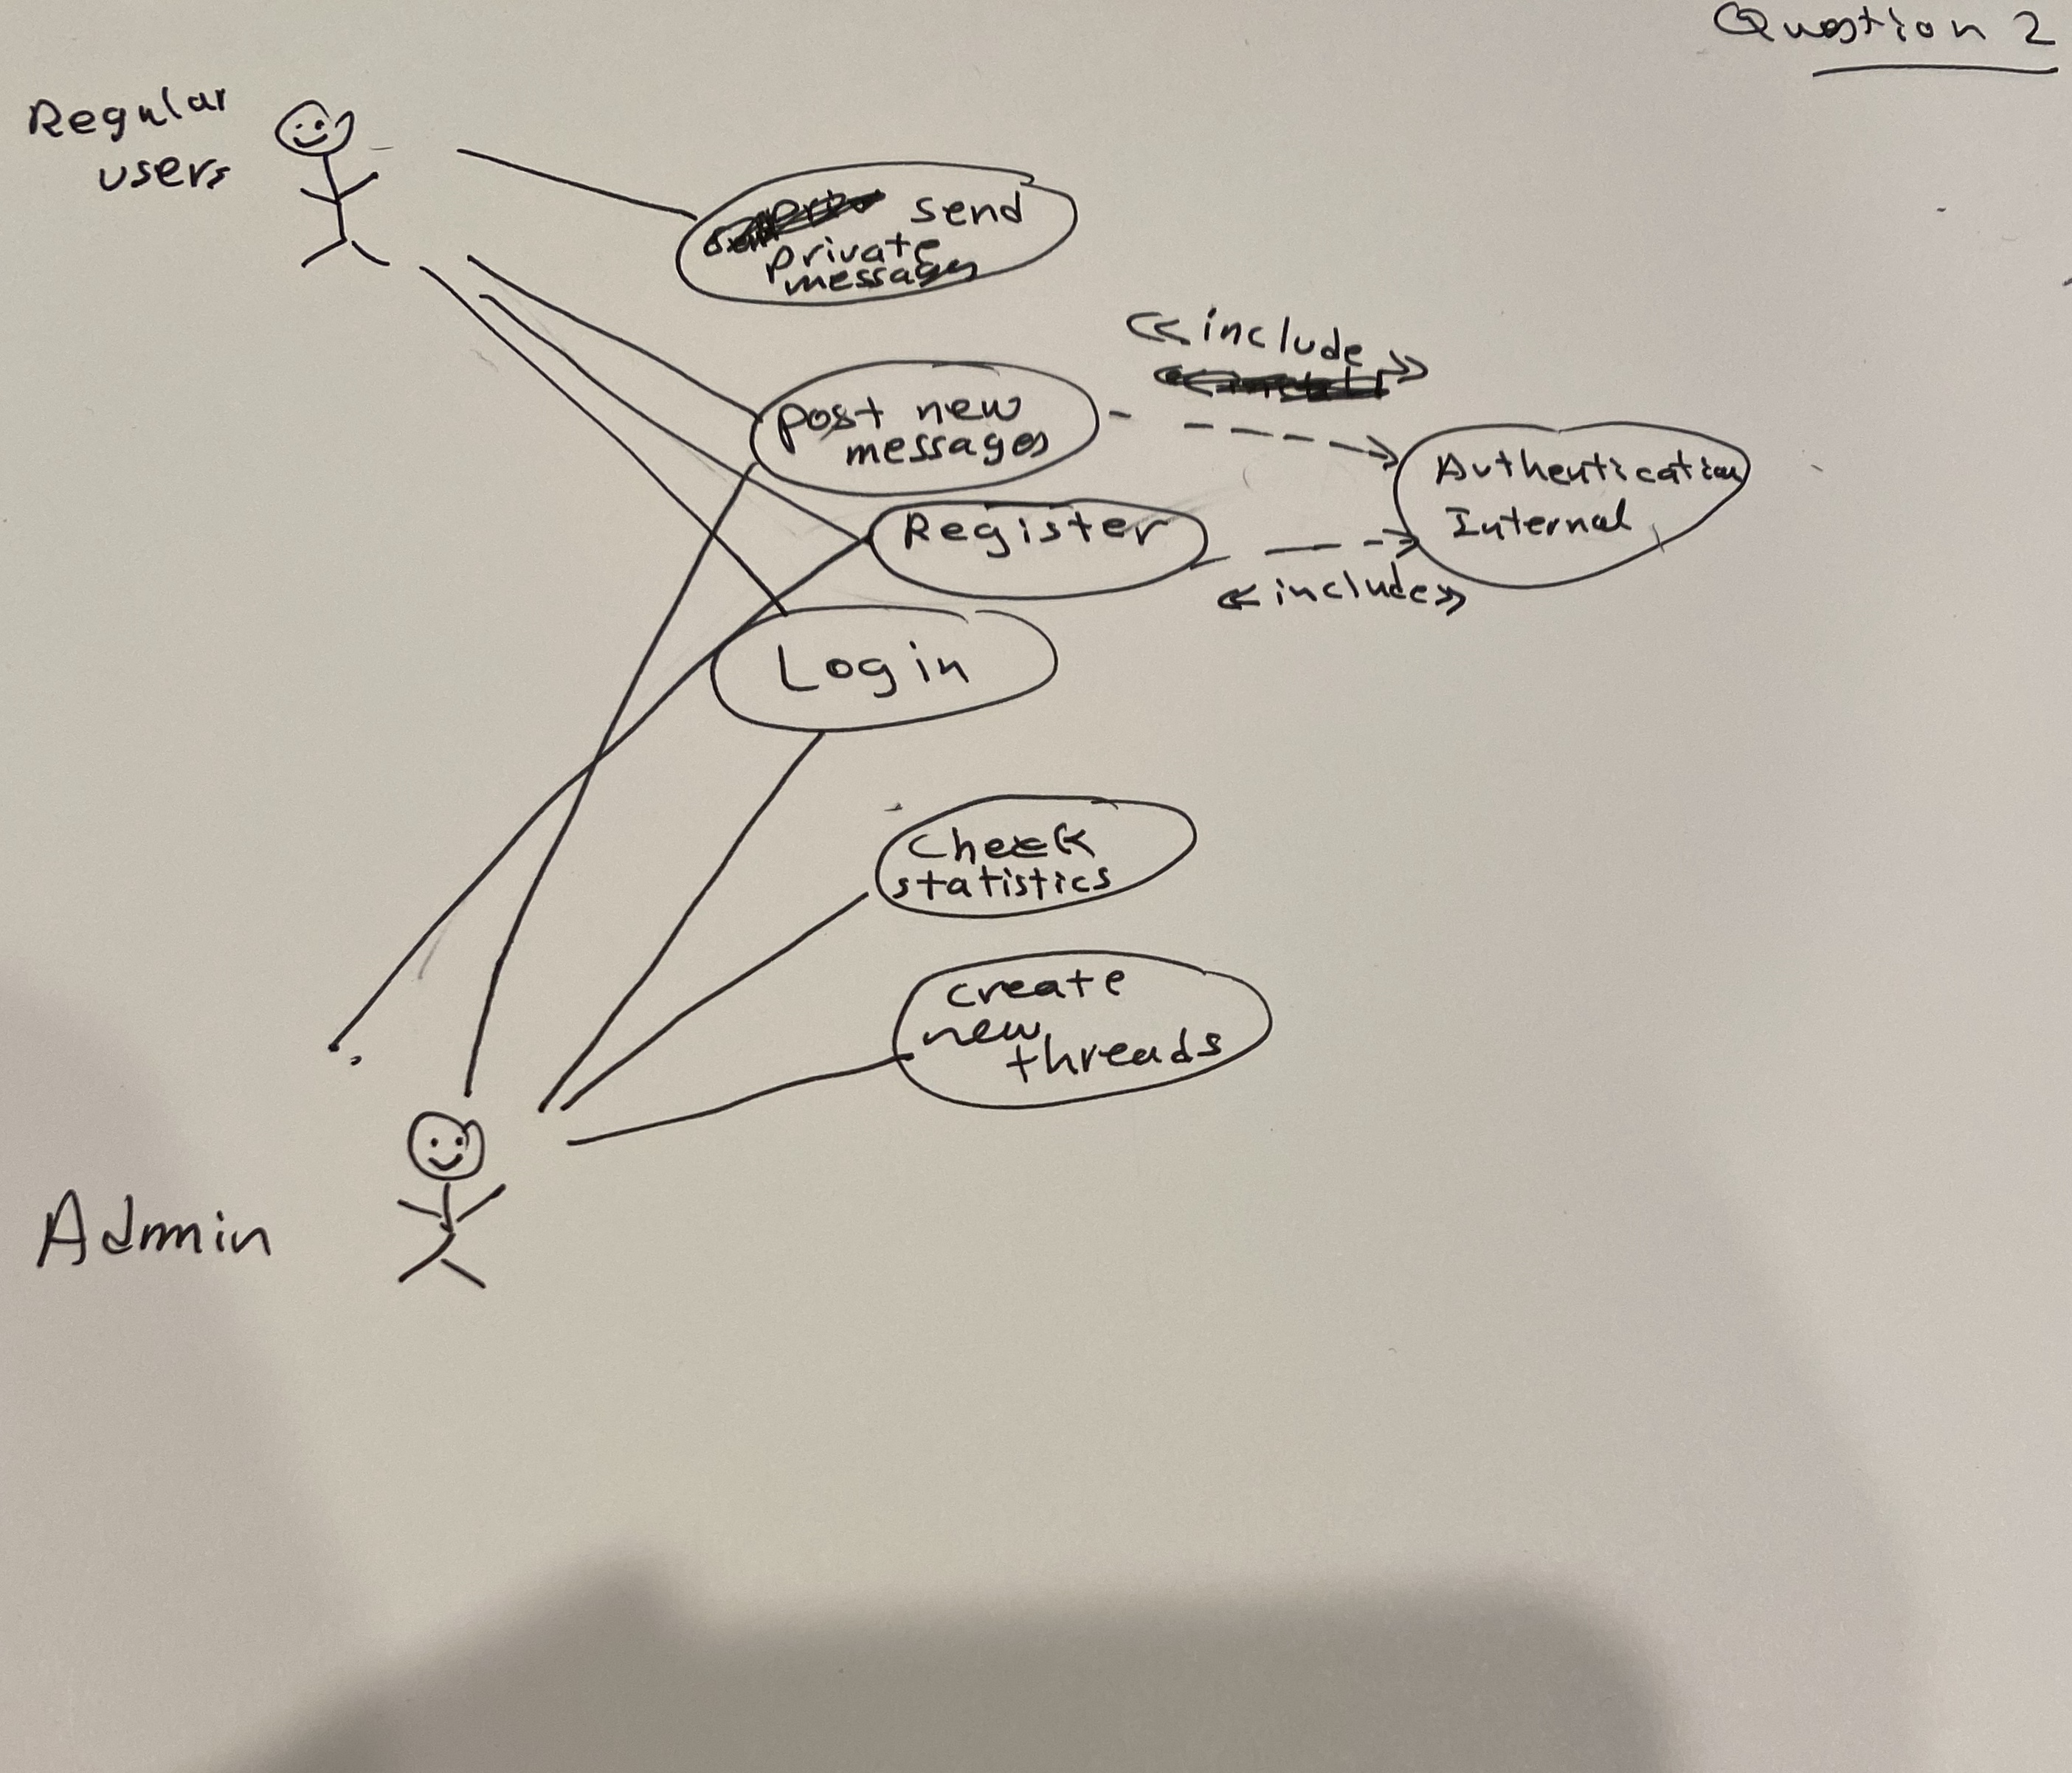 Question 2
Regular
users
send
private
messages
<< include >>
post new
messages
Authentication
Internal
Register
<< include >>
Login
Check
statistics
create
new
threads
Admin